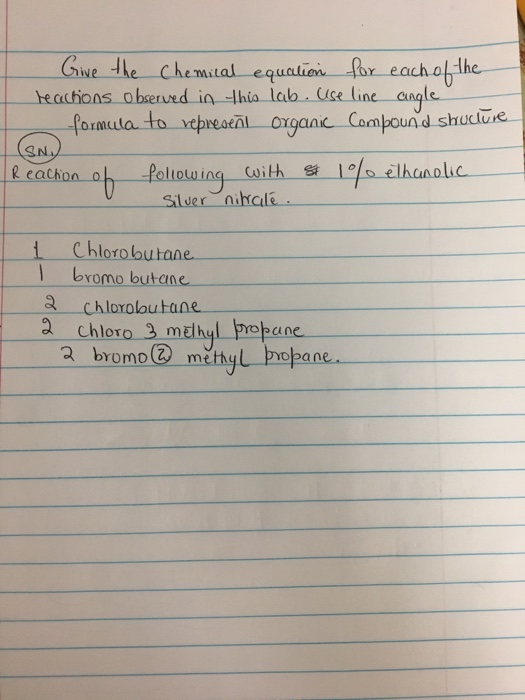 Give the Chemical equation for each of the
reactions observed in this lab. Use line angle
formula to represent organic Compound structure
SN1
Reaction of following with 1% ethanolic
Silver nitrate.
1 Chlorobutane
1 bromobutane
2 chlorobutane
2 chloro 3 methyl propane
2 bromo 2 methyl propane.